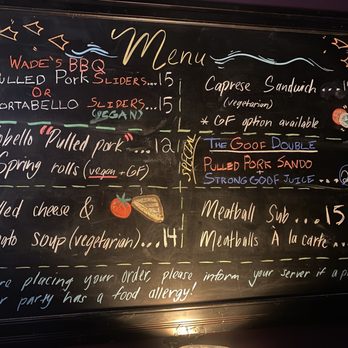 Menu
WADE'S BBQ
PULLED PORK SLIDERS...15
OR
PORTABELLO SLIDERS...15
(VEGAN)
bello "Pulled pork"...12
Spring rolls (vegan + GF)
lled cheese &
ato soup (vegetarian)...14
Caprese Sandwich...15
(vegetarian)
* GF option available
SPECIAL
THE GOOF DOUBLE
PULLED PORK SANDO
STRONG GOOF JUICE...
Meatball Sub...15
Meatballs À la carte...
re placing your order, please inform your server if a p
r party has a food allergy!